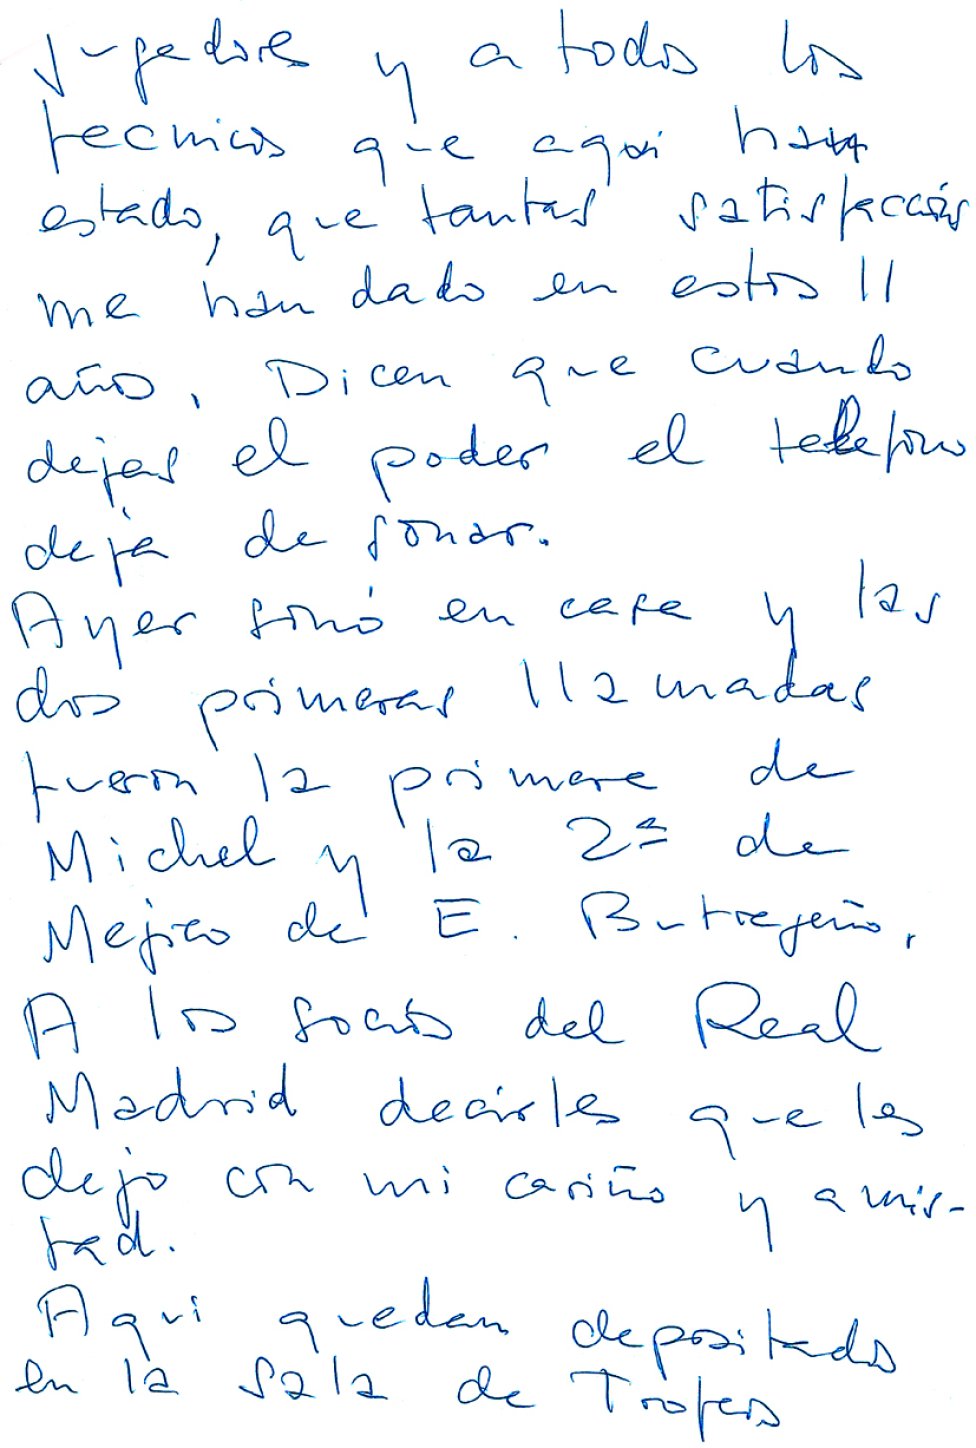 jugadores y a todos los
tecnicos que aqui han
estado, que tantas satisfacciones
me han dado en estos 11
años. Dicen que cuando
dejas el poder el telefono
deja de sonar.
Ayer sonó en casa y las
dos primeras llamadas
fueron la primera de
Michel y la 2ª de
Mejico de E. Butragueño.
A los socios del Real
Madrid decirles que les
dejo con mi cariño y amis-
tad.
Aqui quedan depositados
en la sala de Trofeos